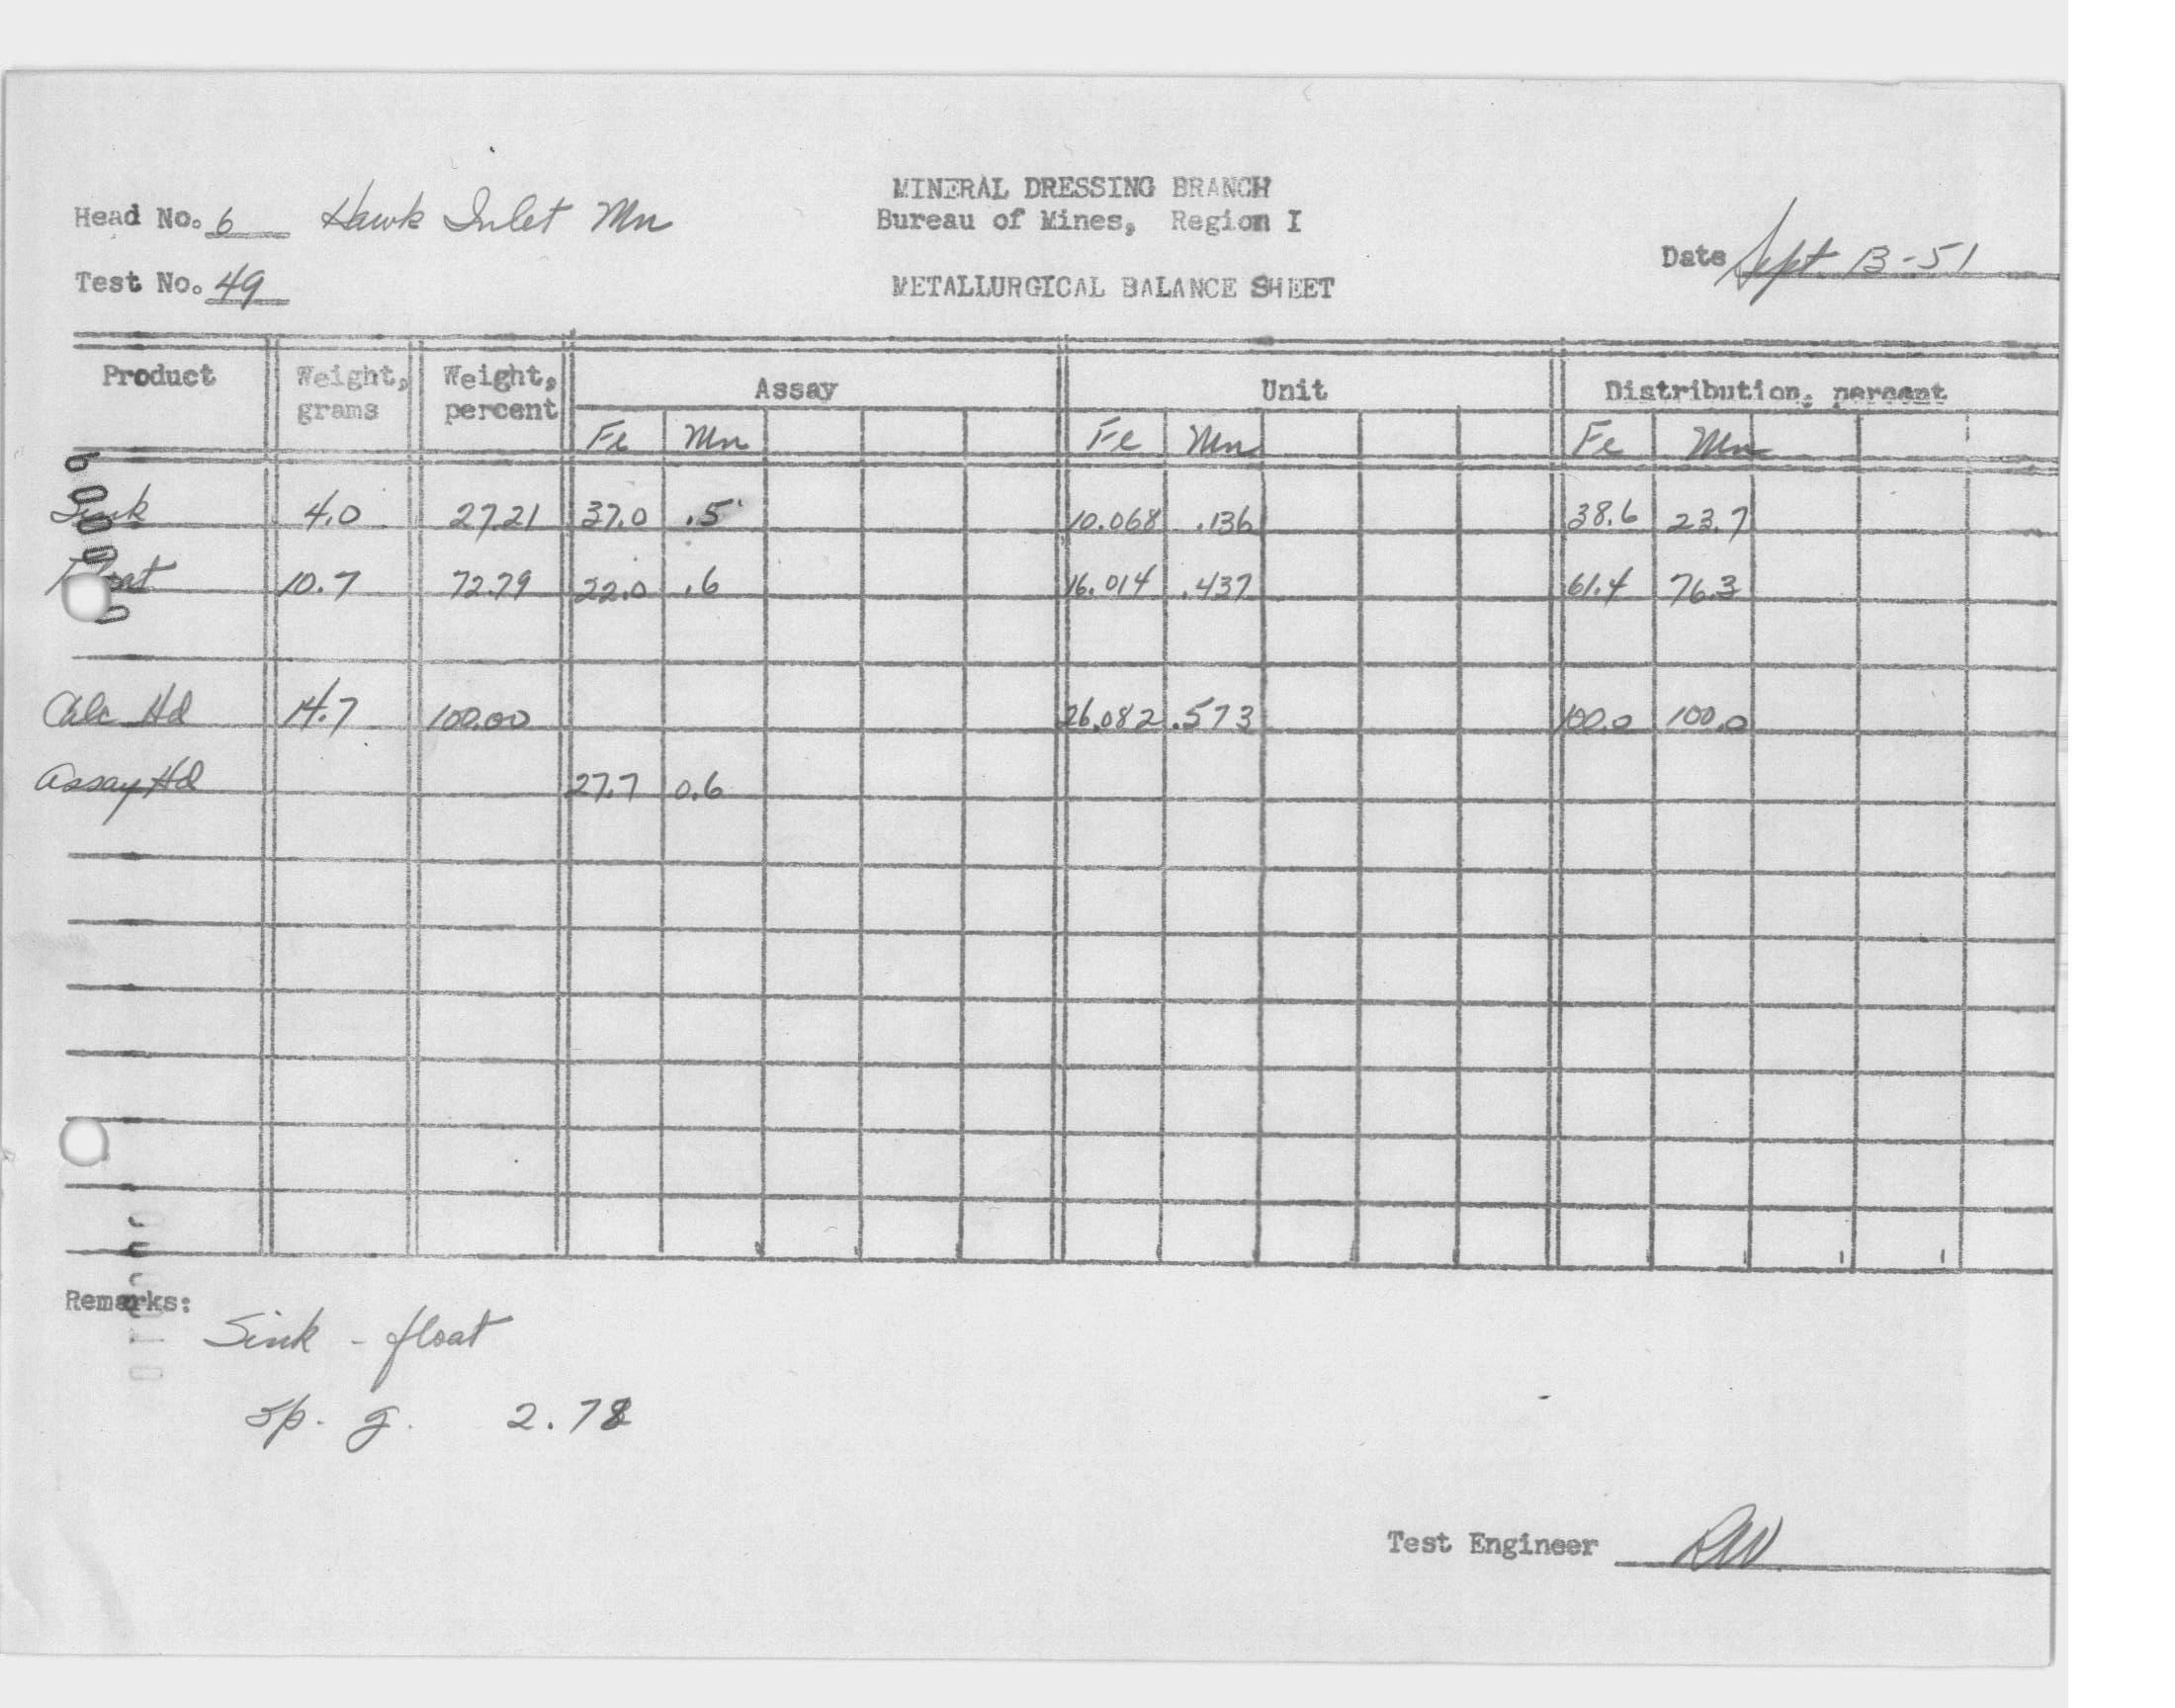 MINERAL DRESSING BRANCH
Head No. 6 Hawk Inlet Mn
Bureau of Mines, Region I
Date Sept. 13-51
Test No. 49
METALLURGICAL BALANCE SHEET
Product Weight, grams Weight, percent Assay Unit Distribution, percent
Fe Mn Fe Mn Fe Mn
Sink 4.0 27.21 37.0 .5 10.068 .136 38.6 23.7
Float 10.7 72.79 22.0 .6 16.014 .437 61.4 76.3
Calc Hd 14.7 100.00 26.082 .573 100.0 100.0
Assay Hd 27.7 0.6
Remarks:
Sink - float
sp. g. 2.78
Test Engineer RW